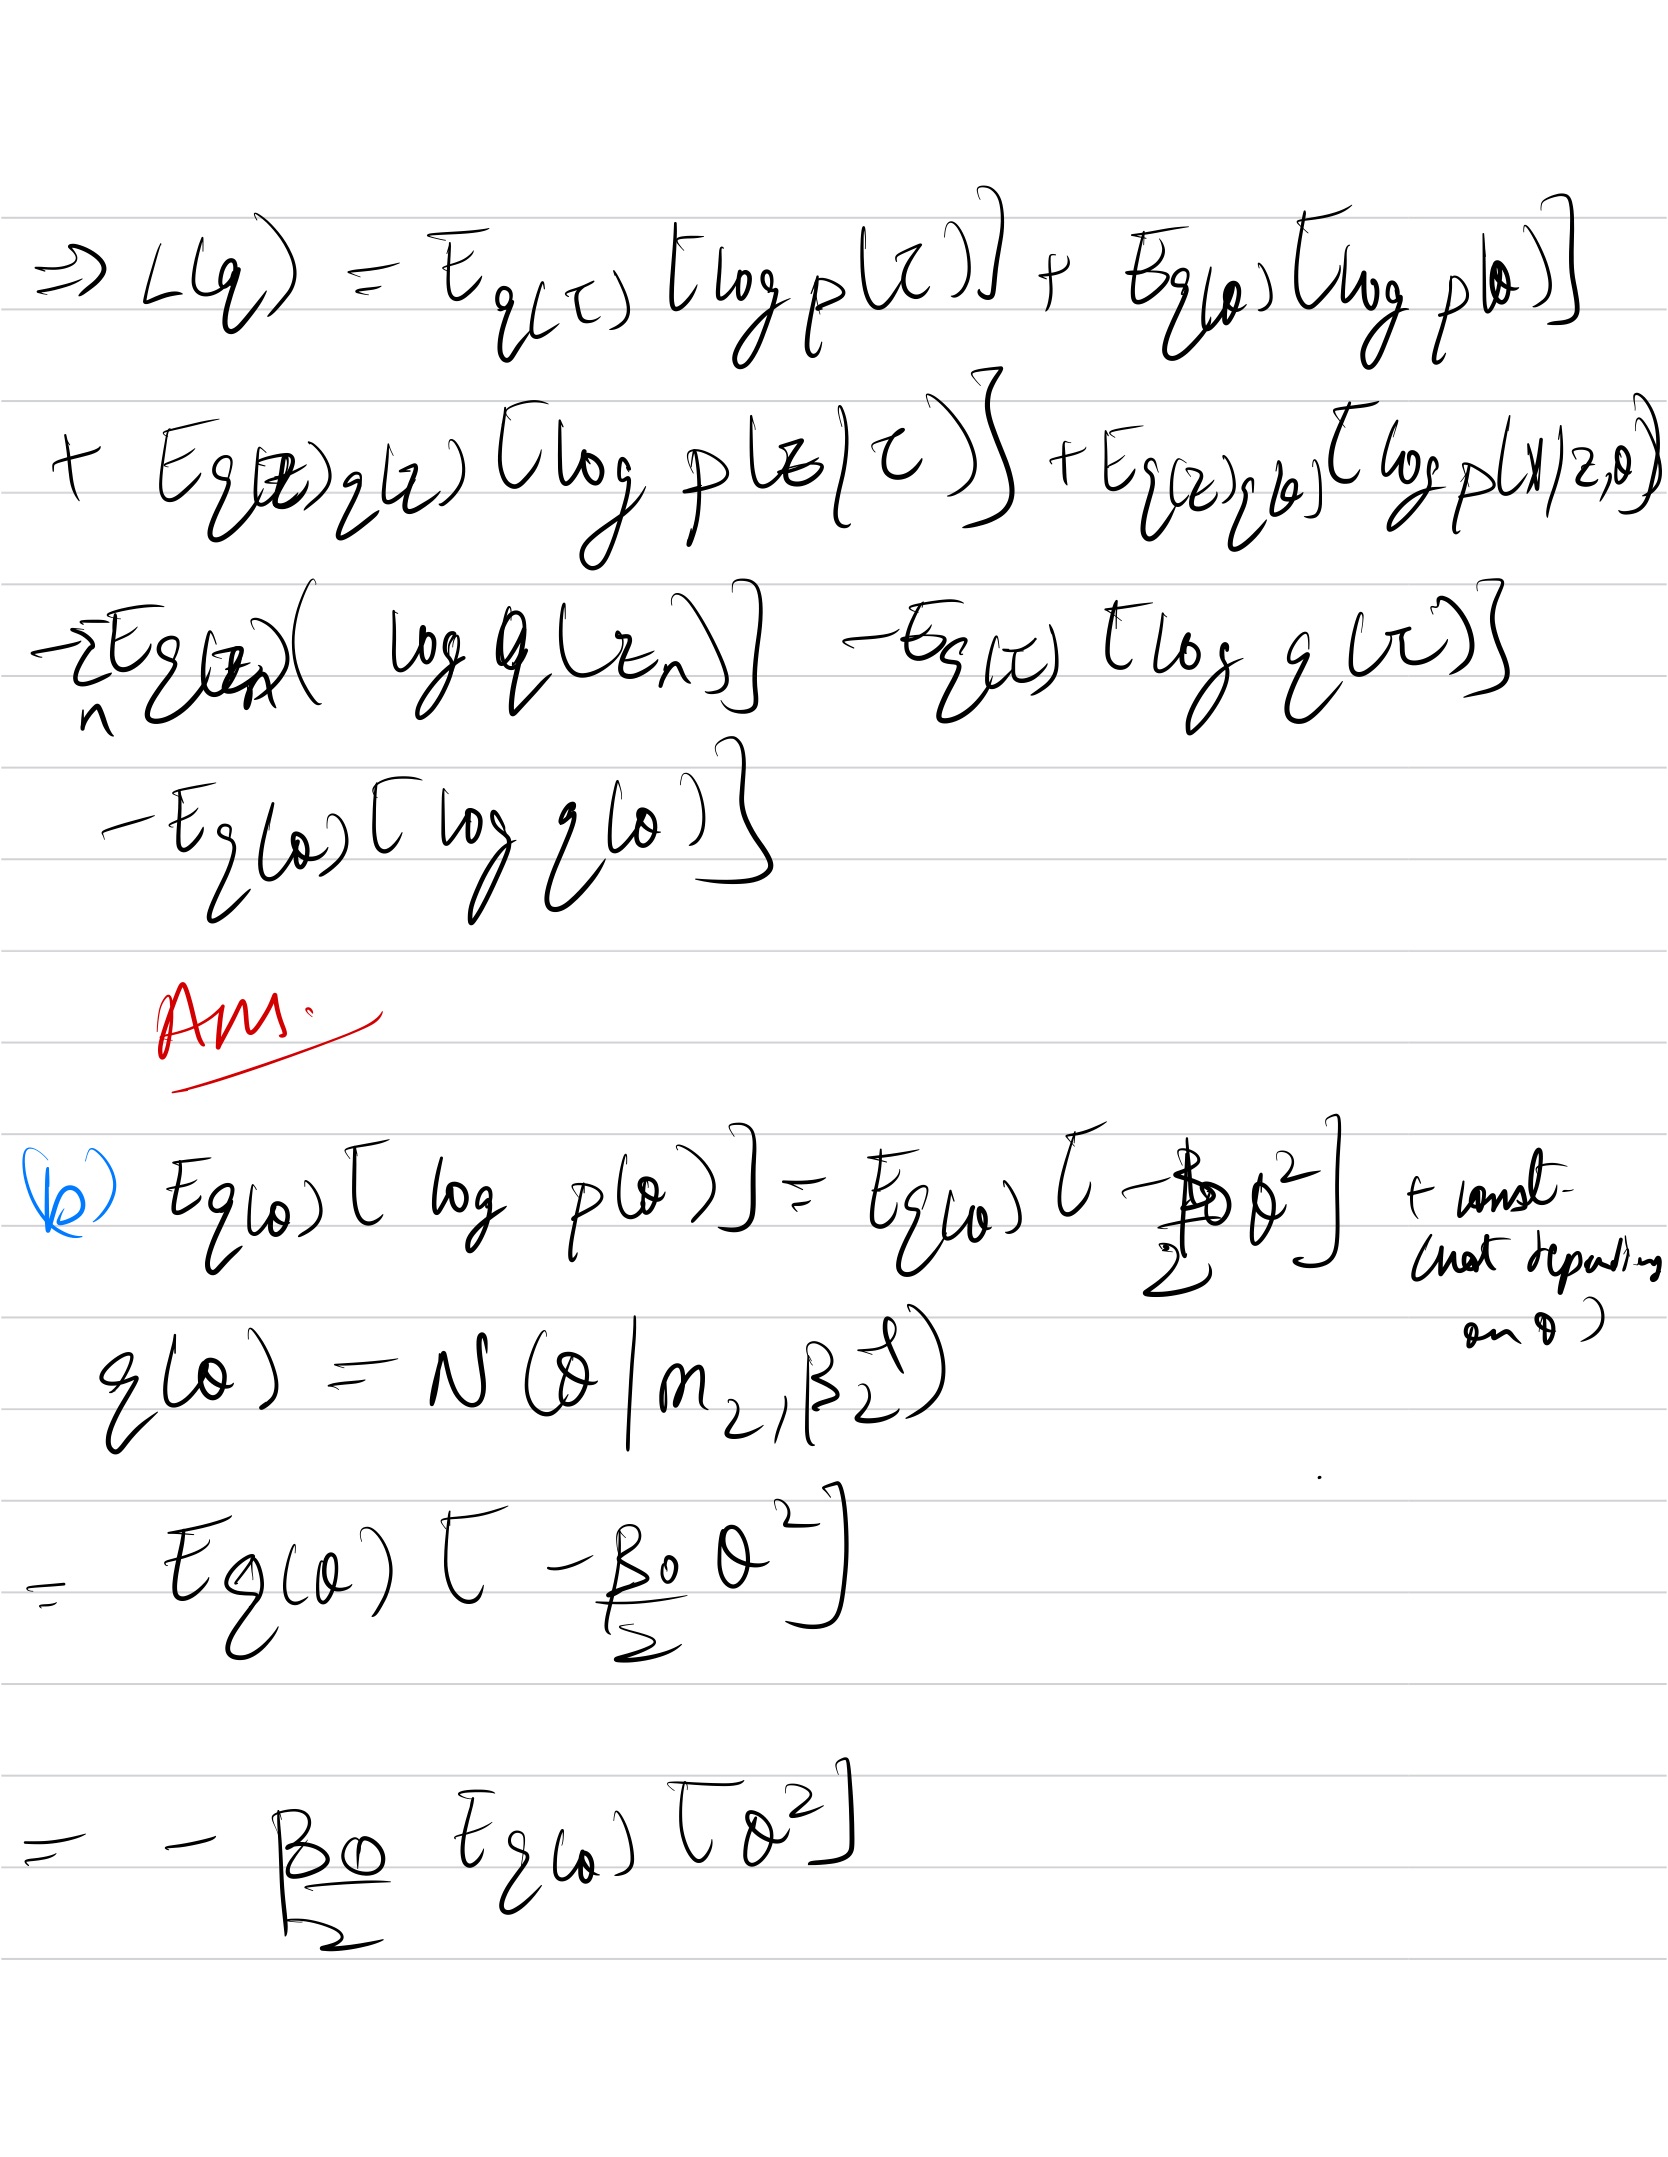 ⇒ L(q) = E_{q(τ)} [log p(τ)] + E_{q(θ)} [log p(θ)]
+ E_{q(τ)q(z)} [log p(z|τ)] + E_{q(z)q(θ)} [log p(x|z,θ)]
- Σ_n E_{q(z_n)} ( log q(z_n) ] - E_{q(τ)} [log q(τ)]
- E_{q(θ)} [log q(θ)]
Ans.
(b) E_{q(θ)} [ log p(θ) ] = E_{q(θ)} [ -β_0/2 θ^2 ] + const
(not depending
on θ)
q(θ) = N(θ | m_2, β_2^{-1})
= E_{q(θ)} [ -β_0/2 θ^2 ]
= - β_0/2 E_{q(θ)} [θ^2]